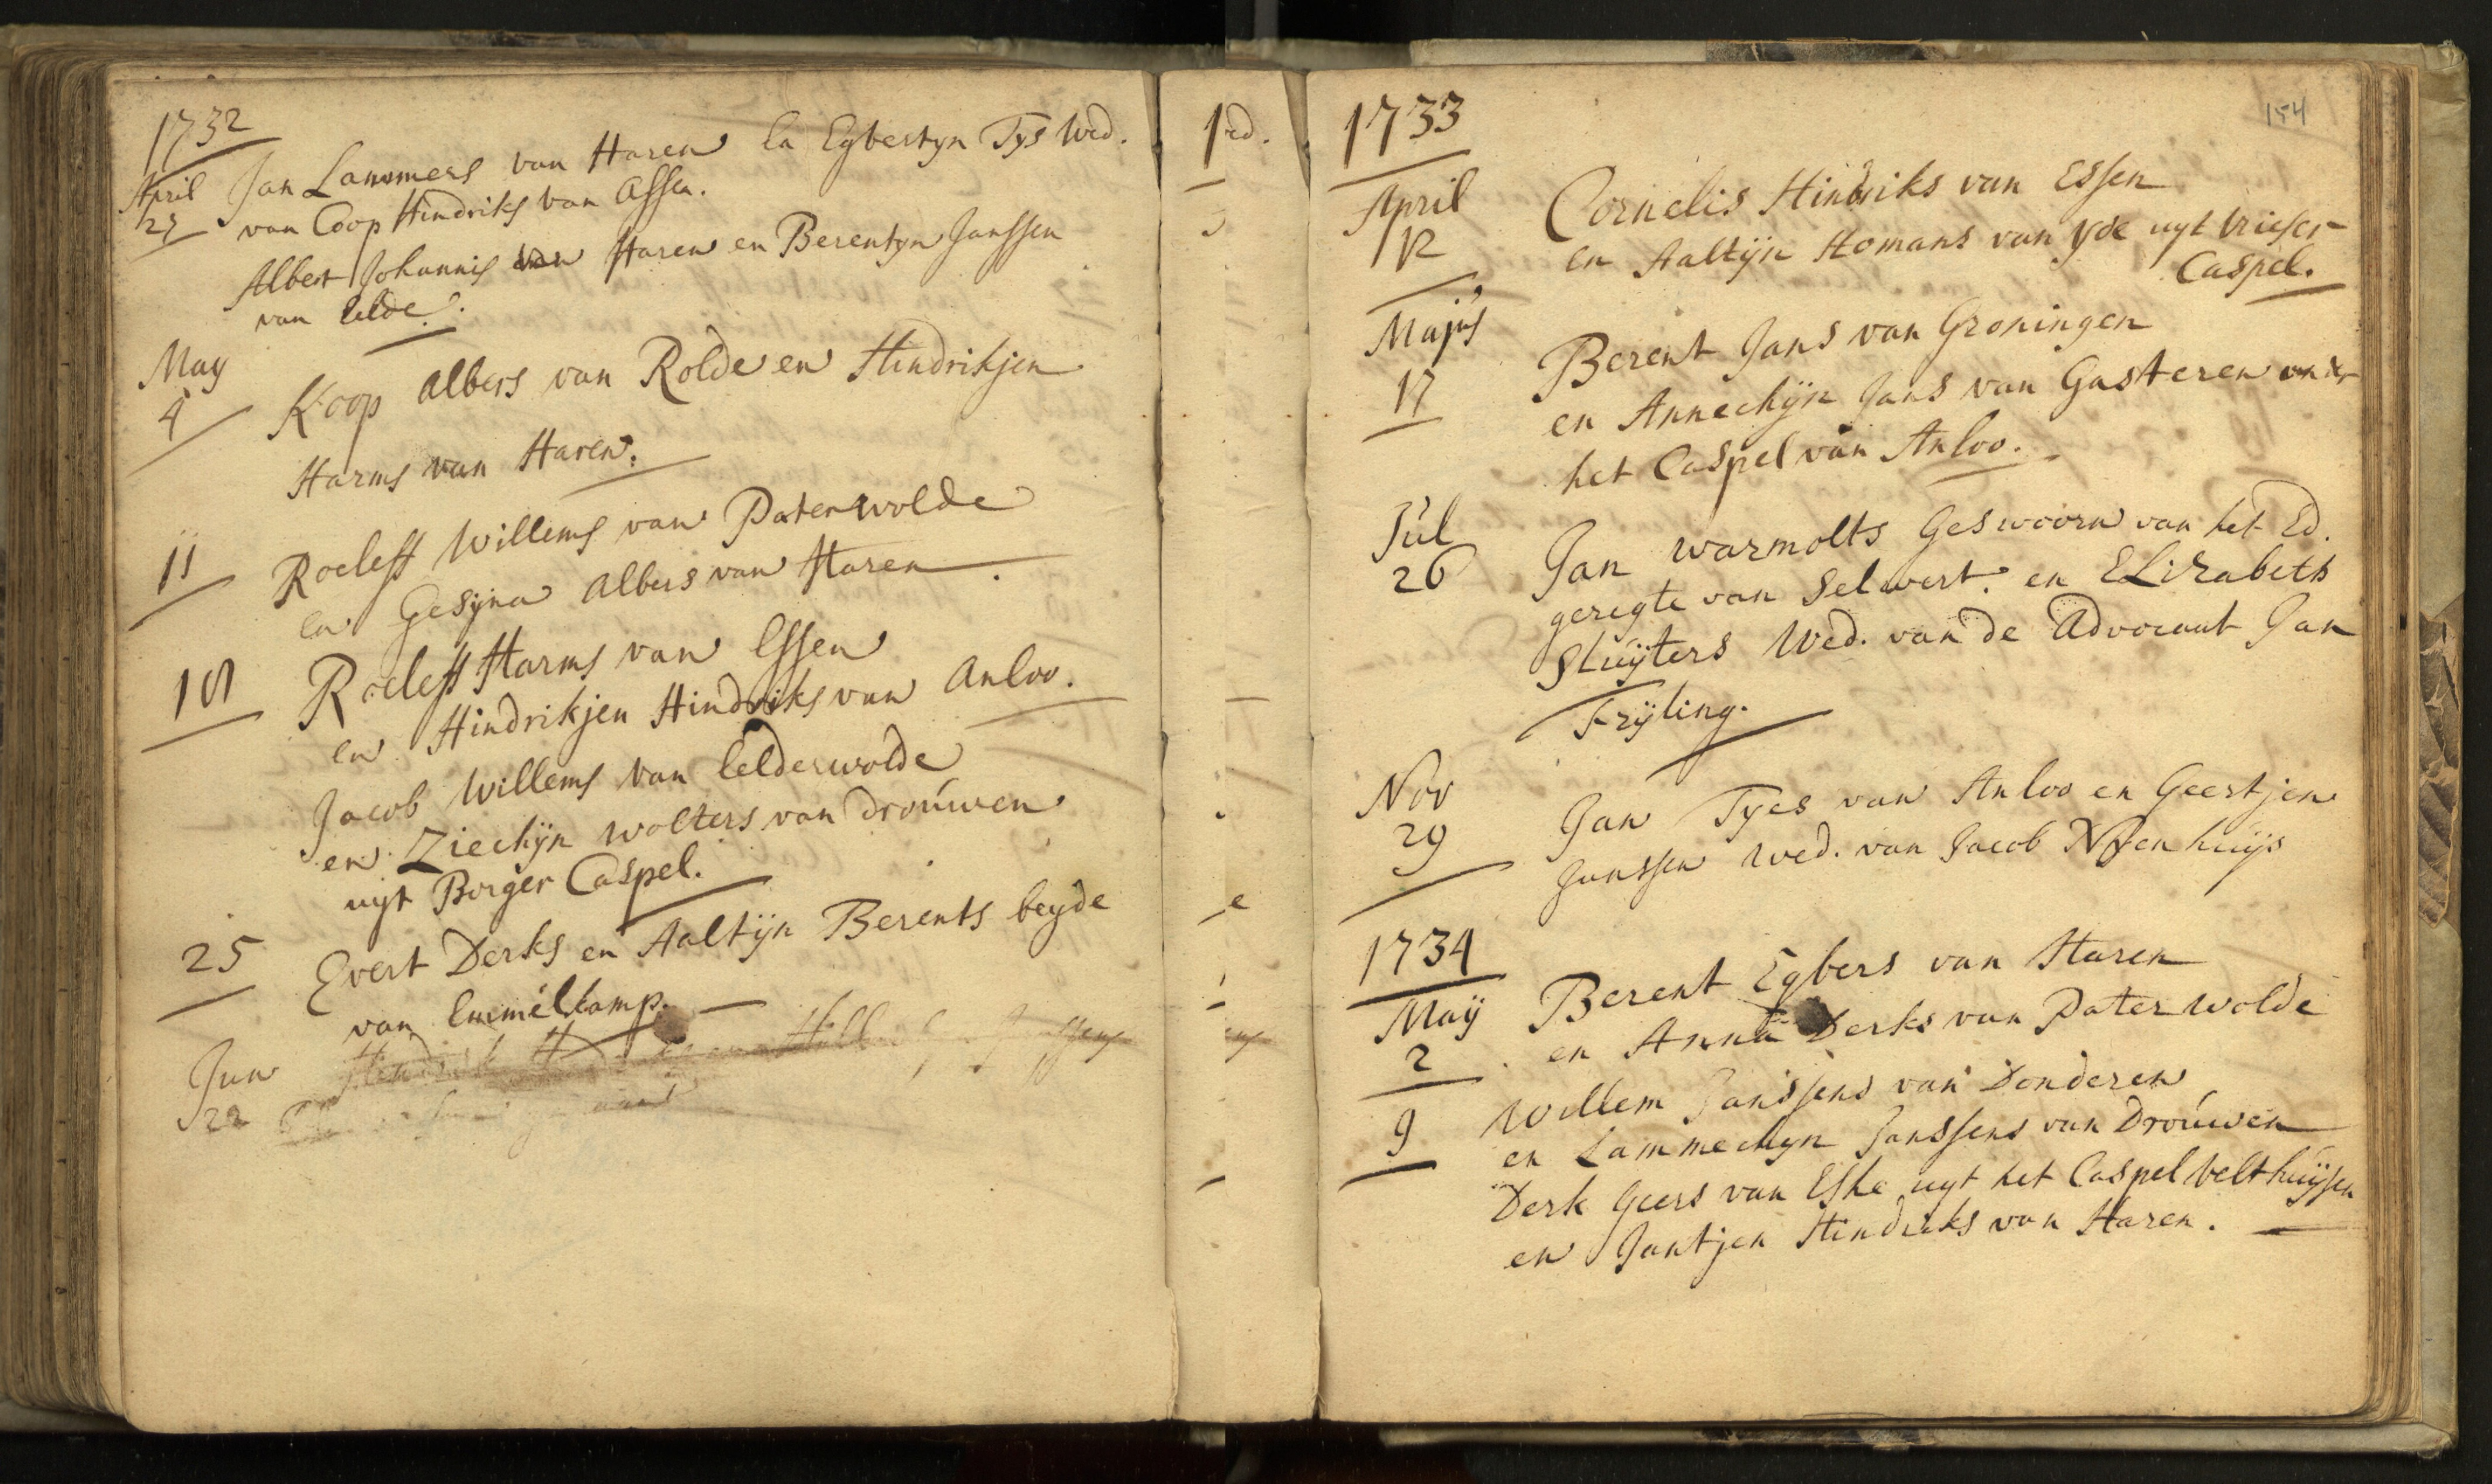 1732
April
27
Jan Lammers van Haren en Egbertyn Tys Wed.
van Coop Hindriks van Assen.
Albert Johannis van Haren en Berentyn Janssen
van Eelde.
May
4
Koop Albers van Rolde en Hindrikjen
Harms van Haren.
11
Roeleff Willems van Paterwolde
en Gesyna Albers van Haren.
18
Roeleff Harms van Essen
en Hindrikjen Hindriks van Anloo.
Jacob Willems van Eelderwolde
en Ziechijn Wolters van Drouwen
uyt Borger Caspel.
25
Evert Derks en Aaltijn Berents beyde
van Emmelkamp.
Jun
22
Hindrik
1733
154
April
12
Cornelis Hindriks van Essen
en Aaltijn Homans van Yde uyt Vrieser
Caspel.
Majus
17
Berent Jans van Groningen
en Annechijn Jans van Gasteren onder
het Caspel van Anloo.
Jul
26
Jan Warmolts Geswoorn van het Ed.
geregte van Selwert. en Elizabeth
Sluijters Wed. van de Advocaat Jan
Frijling.
Nov
29
Jan Tyes van Anloo en Geertjen
Janssen wed. van Jacob
1734
Maij
2
Berent Egbers van Haren
en Anna Derks van Paterwolde
9
Willem Janssens van Donderen
en Lammechyn Janssens van Drouwen
Derk Geers van Eshe uyt het Caspel Velthuijsen
en Jantjen Hindriks van Haren.